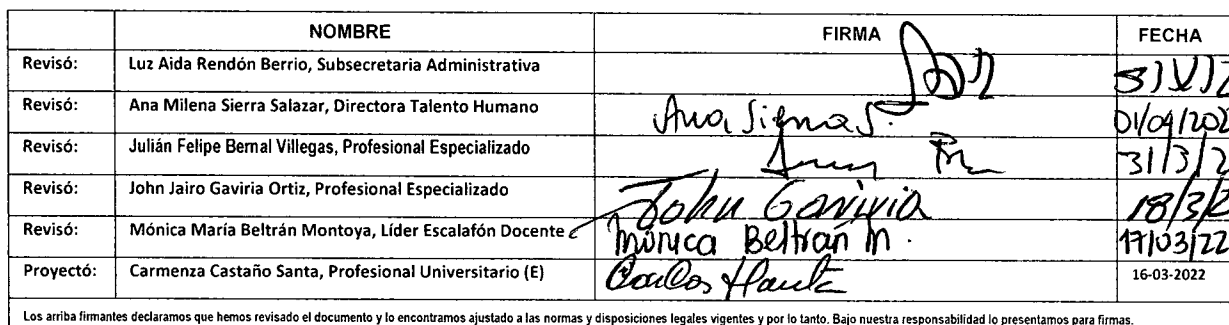 NOMBRE FIRMA FECHA
Revisó: Luz Aida Rendón Berrio, Subsecretaria Administrativa
Revisó: Ana Milena Sierra Salazar, Directora Talento Humano Ana Sierra S. 01/04/202
Revisó: Julián Felipe Bernal Villegas, Profesional Especializado 31/3/2
Revisó: John Jairo Gaviria Ortiz, Profesional Especializado John Gaviria 18/3/2
Revisó: Mónica María Beltrán Montoya, Líder Escalafón Docente Mónica Beltrán M. 17/03/22
Proyectó: Carmenza Castaño Santa, Profesional Universitario (E) 16-03-2022
Los arriba firmantes declaramos que hemos revisado el documento y lo encontramos ajustado a las normas y disposiciones legales vigentes y por lo tanto. Bajo nuestra responsabilidad lo presentamos para firmas.